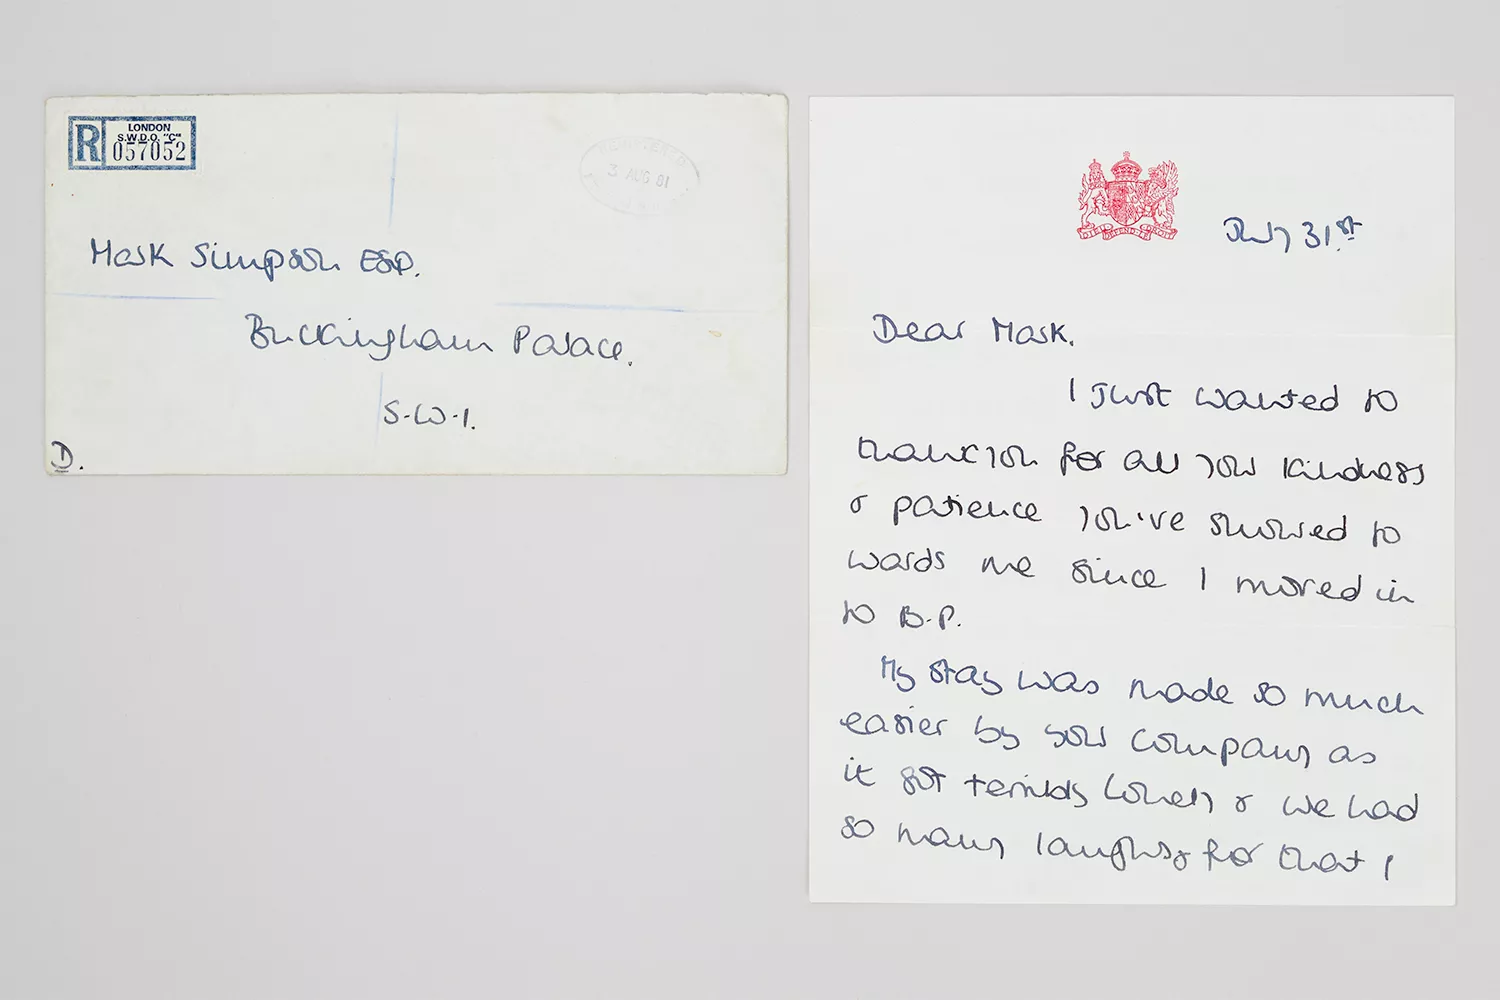 R
LONDON
S.W.D.O. "C"
057052
3 AUG 81
Mark Simpson ESQ.
Buckingham Palace.
S.W.1.
D.
July 31st
Dear Mark.
I Just wanted to
thank you for all your kindness
& patience you've showed to
wards me since I moved in
to B.P.
My stay was made so much
easier by your company as
it got terribly lonely & we had
so many laughs, & for that I